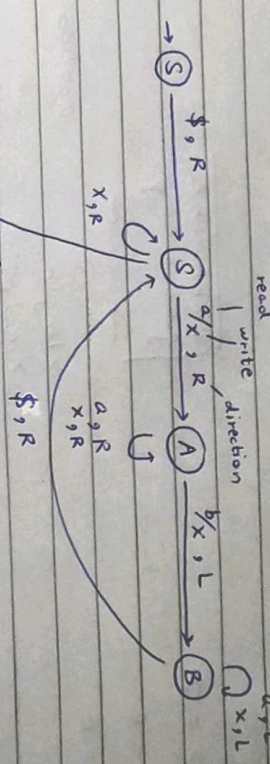 read
write
direction
→ S
$, R
S
a/x, R
A
b/x, L
B
x, L
x, R
a, R
x, R
$, R